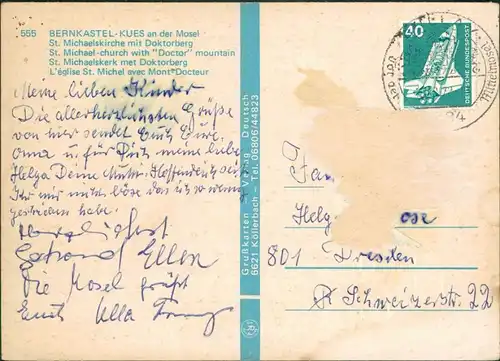 555 BERNKASTEL-KUES an der Mosel
St. Michaelskirche mit Doktorberg
St. Michael-church with "Doctor" mountain
St. Michaelskerk met Doktorberg
L'église St. Michel avec Mont "Docteur"
Meine lieben Kinder
Die allerherzlichsten Grüße
von hier sendet Euch Eure
Oma u. für Dich meine liebe
Helga Deine Mutti. Hoffentlich seid
Ihr mir nicht böse das ich so wenig
geschrieben habe.
herzlichst
Gertrud Ellen
Die Mosel grüßt
Euch Ulla
Grußkarten - Verlag Deutsch
6621 Köllerbach - Tel. 06806/44823
40
DEUTSCHE BUNDESPOST
Fam
Helg ose
801 Dresden
Schweizerstr. 22